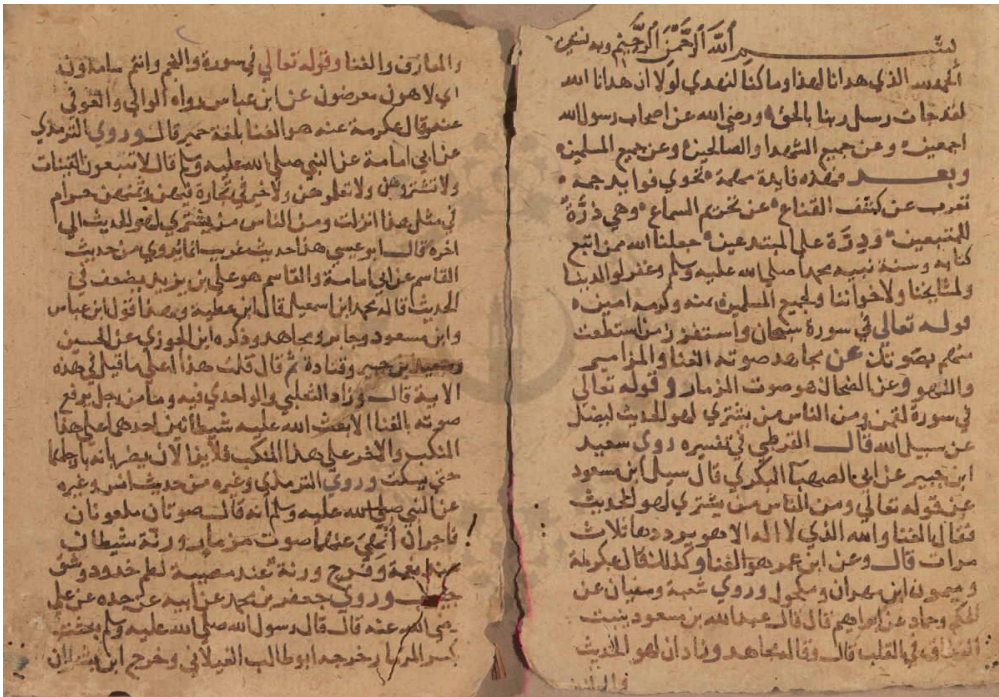 بسم الله الرحمن الرحيم وبه نستعين
الحمد لله الذي هدانا لهذا وما كنا لنهتدي لولا ان هدانا الله
لقد جات رسل ربنا بالحق ورضي الله عن اصحاب رسول الله
اجمعين وعن جميع الشهدا والصالحين وعن جميع المسلمين
وبعد فهذه فايدة مهمة تحوي فوايد جمة
تعرب عن كشف القناع عن تحريم السماع وهي ذرة
للمتبعين ودرة على المبتدعين جعلنا الله ممن اتبع
كتابه وسنة نبيه محمد صلى الله عليه وسلم وغفر لوالدينا
ولمشايخنا ولاخواننا ولجميع المسلمين بمنه وكرمه امين
قوله تعالي في سورة سبحان واستفزز من استطعت
منهم بصوتك عن مجاهد صوته الغنا والمزامير
واللهو وعن الضحاك هو صوت المزمار وقوله تعالي
في سورة لقمن ومن الناس من يشتري لهو الحديث ليضل
عن سبيل الله قال القرطبي في تفسيره روي سعيد
ابن جبير عن ابي الصهبا البكري قال سيل ابن مسعود
عن قوله تعالي ومن الناس من يشتري لهو الحديث
فقال الغنا والله الذي لا اله الا هو يرددها ثلاث
مرات قال وعن ابن عمر هو الغنا وكذلك قال عكرمة
وميمون ابن مهران ومكحول وروي شعبة وسفيان عن
الحكم وحماد عن ابراهيم قال قال عبد الله بن مسعود ينبت
النفاق في القلب قال وقاله مجاهد وزاد ان لهو الحديث
والمعازف والغنا وقوله تعالي في سورة والنجم وانتم سامدون
اي لاهون معرضون عن ابن عباس رواه الوالبي والعوفي
عنه وقال عكرمة عنه هو الغنا بلغة حمير قال وروي الترمذي
عن ابي امامة عن النبي صلي الله عليه وسلم قال لا تبيعون القينات
ولا تشتروهن ولا تعلموهن ولا خير في تجارة فيهن وثمنهن حرام
في مثل هذا انزلت ومن الناس من يشتري لهو الحديث الي
اخره قال ابو عيسي هذا حديث غريب انما يروي من حديث
القاسم عن ابي امامة والقاسم هو علي بن يزيد يضعف في
الحديث قاله محمد ابن اسمعيل قال ابن عطية وبهذا قول ابن عباس
وابن مسعود وجابر ومجاهد وذكره ابن الجوزي عن الحسين
وسعيد بن جبير وقتادة ثم قال قلت هذا اعلي ما قيل في هذه
الاية قال وزاد الثعلبي والواحدي فيه وما من رجل يرفع
صوته بالغنا الا بعث الله عليه شيطانين احدهما علي هذا
المنكب والاخر علي هذا المنكب فلا يزالان يضربانه بارجلهما
حتي يسكت وروي الترمذي وغيره من حديث انس وغيره
عن النبي صلي الله عليه وسلم انه قال صوتان ملعونان
فاجران انهي عنهما صوت مزمار ورنة شيطان
عند نغمة وفرح ورنة عند مصيبة لطم خدود وشق
جيوب وروي جعفر بن محمد عن ابيه عن جده عن علي
رضي الله عنه قال قال رسول الله صلي الله عليه وسلم بعثت
بكسر المزمار خرجه ابو طالب الغيلاني وخرج ابن بشران